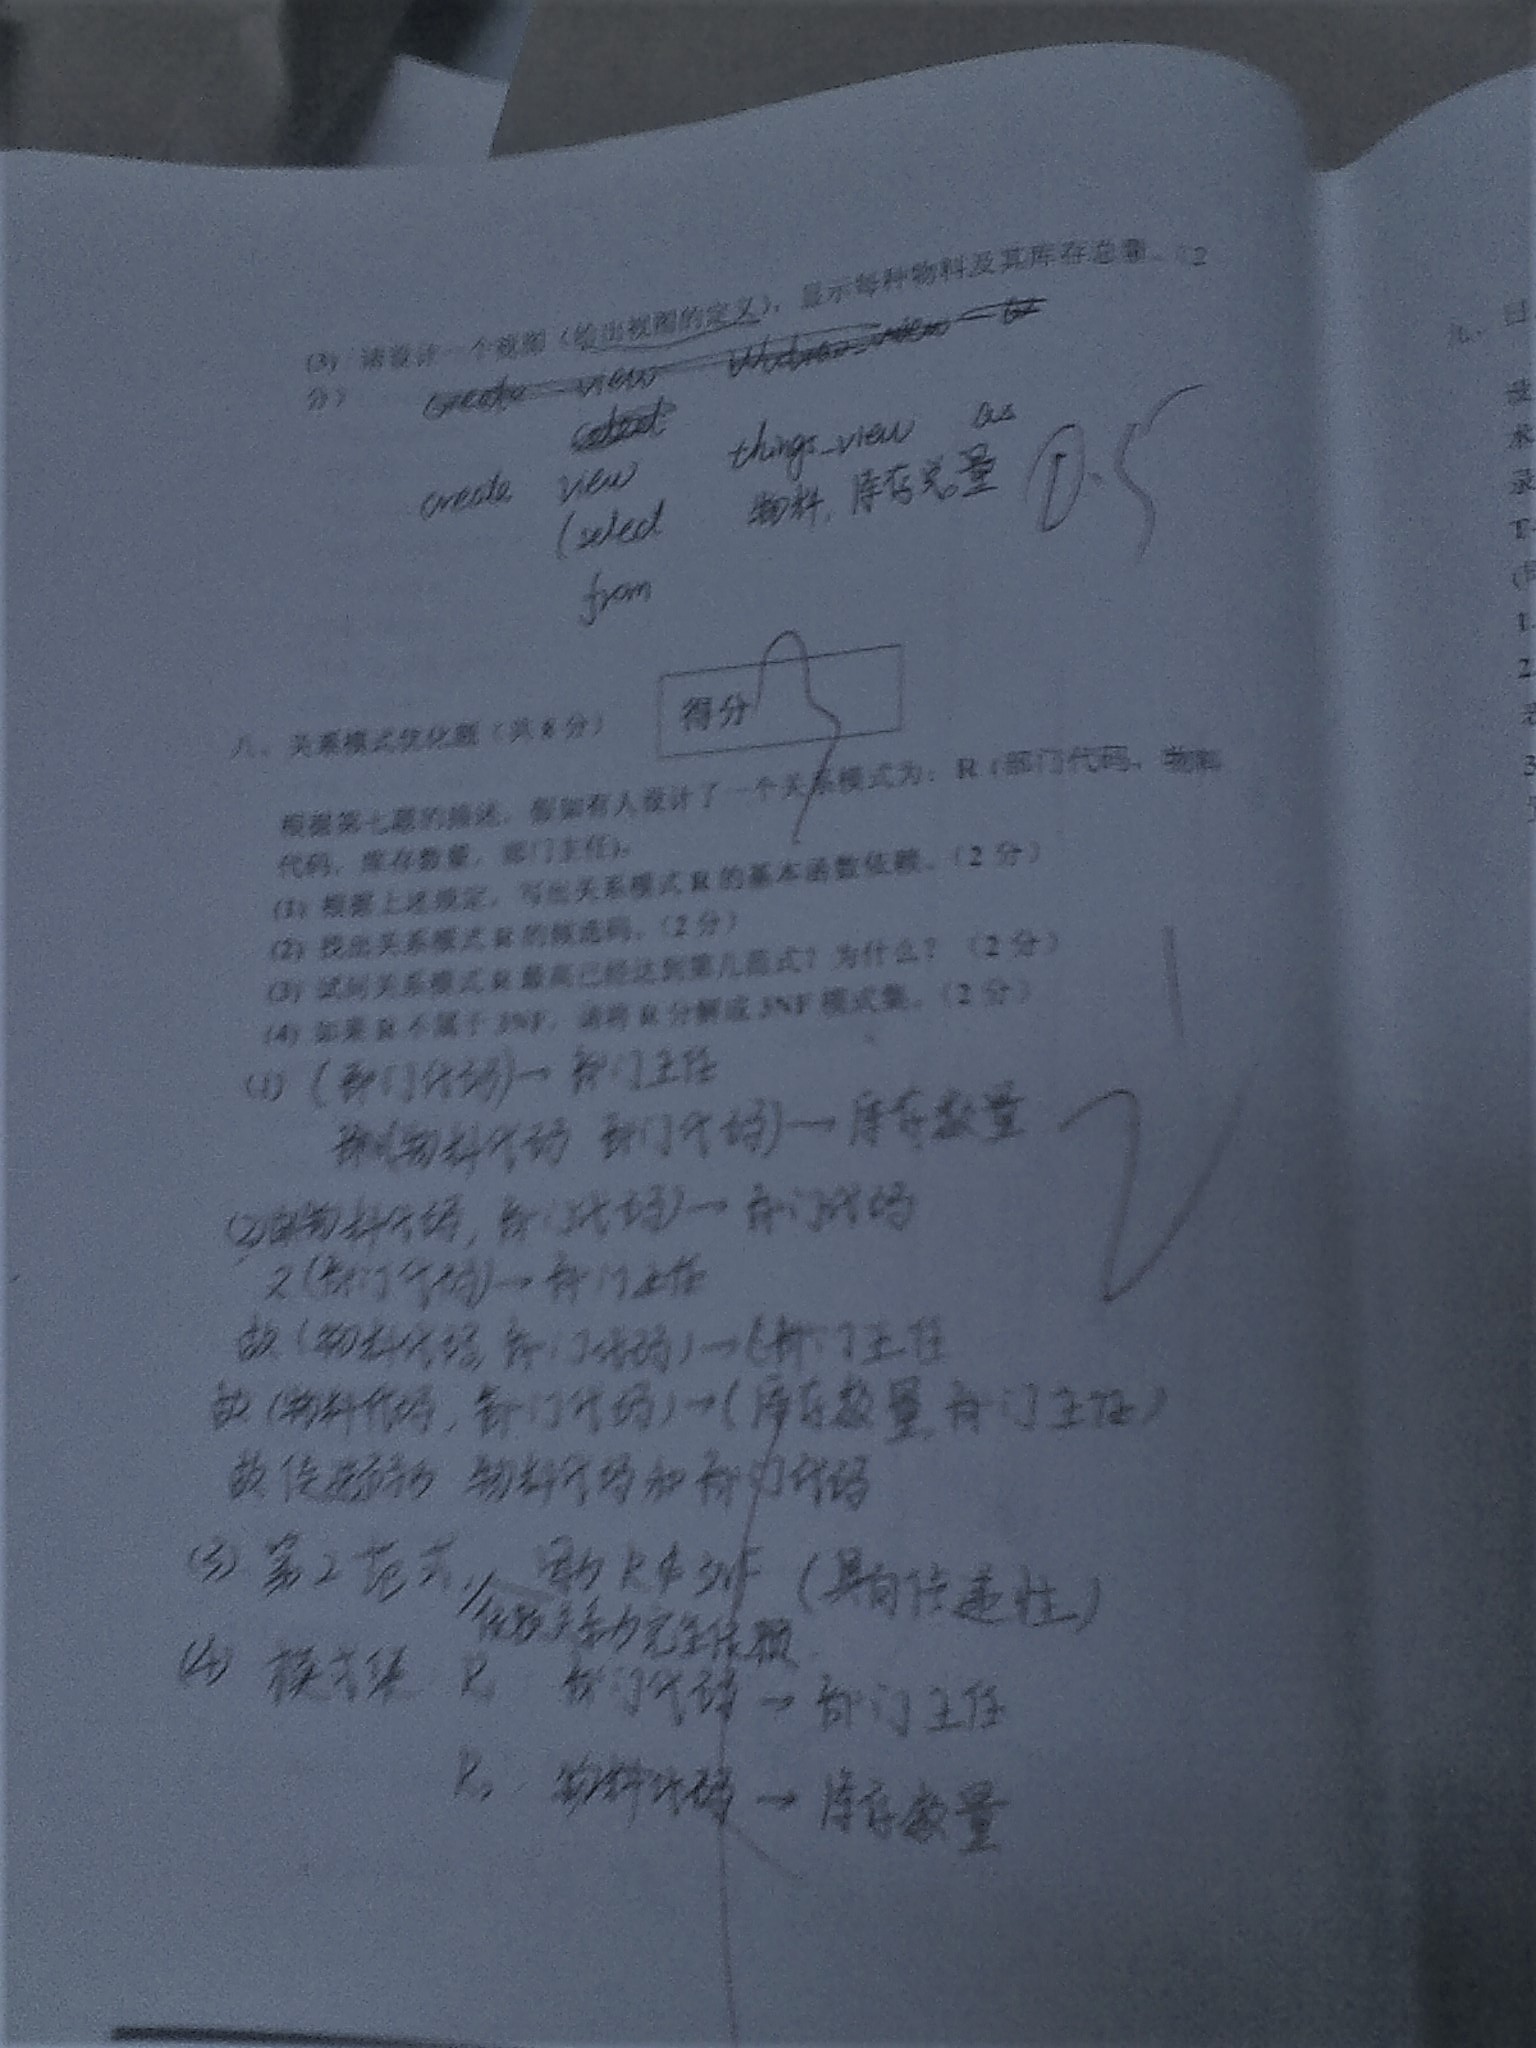 (3) 请设计一个视图（给出视图的定义），显示每种物料及其库存总量。（2
分）
create view as
select
create view things_view as
(select 物料, 库存总量
from
得分
八、关系模式优化题（共8分）
根据第七题的描述，假如有人设计了一个关系模式为：R（部门代码，物料
代码，库存数量，部门主任）。
(1) 根据上述规定，写出关系模式R的基本函数依赖。（2分）
(2) 找出关系模式R的候选码。（2分）
(3) 试问关系模式R最高已经达到第几范式？为什么？（2分）
(4) 如果R不属于3NF，请将R分解成3NF模式集。（2分）
(1) (部门代码)→部门主任
(物料代码 部门代码)→库存数量
(2) 物料代码, 部门代码)→部门代码
又(部门代码)→部门主任
故(物料代码, 部门代码)→(部门主任
故(物料代码, 部门代码)→(库存数量, 部门主任)
故候选码为 物料代码和部门代码
(3) 第2范式, 因为R∉3NF (具有传递性)
完全依赖
(4) 模式集 R₁ 部门代码→部门主任
R₂ 物料代码→库存数量
九、
录
1.
2.
3